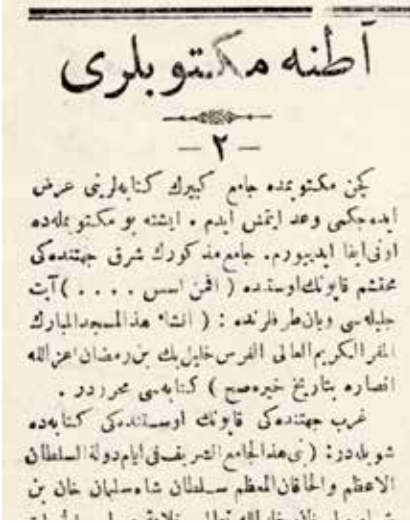 آطنه مكتوبلرى
— ٢ —
كچن مكتوبمده جامع كبيرك كتابه‌لرينى عرض
ايده‌جكمى وعد ايتمش ايدم . ايشته بو مكتوبمله‌ده
اونى ايفا ايديورم. جامع مذكورك شرق جهتنده‌كى
محتشم قاپونك اوستنده ( افمن اسس . . . . ) آيت
جليله‌سى ويان طرفلرنده : ( انشاء هذالمسجد المبارك
المقر الكريم العالى الفرس خليل بك بن رمضان اعز الله
انصاره بتاريخ خيره صح ) كتابه‌سى محرردر .
غرب جهتنده‌كى قاپونك اوستنده‌كى كتابه‌ده
شويله‌در: (بنى هذالجامع الشريف فى ايام دولة السلطان
الاعظم والخاقان المعظم سلطان شاه سليمان خان بن